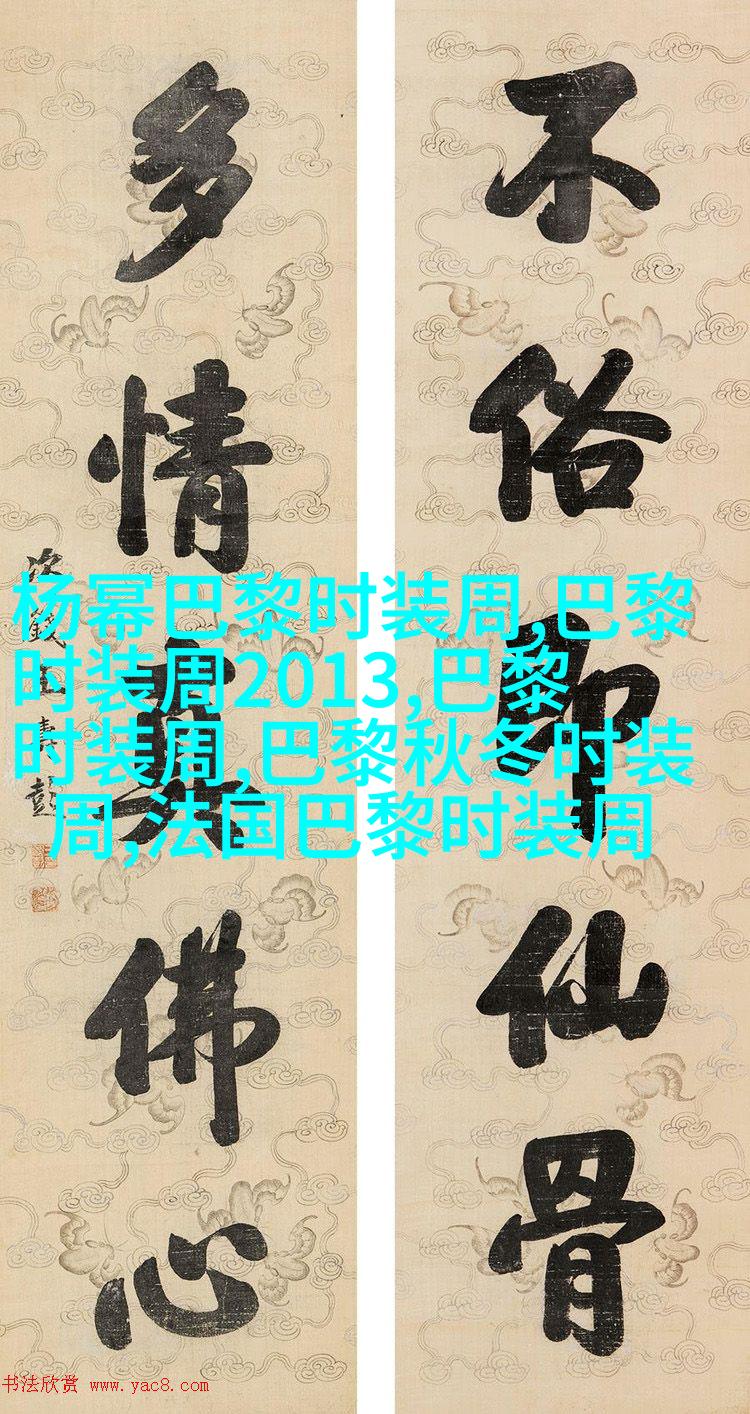 不俗即仙骨
多情真佛心
次籛王壽彭
杨幂巴黎时装周,巴黎
时装周2013,巴黎
时装周,巴黎秋冬时装
周,法国巴黎时装周
书法欣赏 www.yac8.com